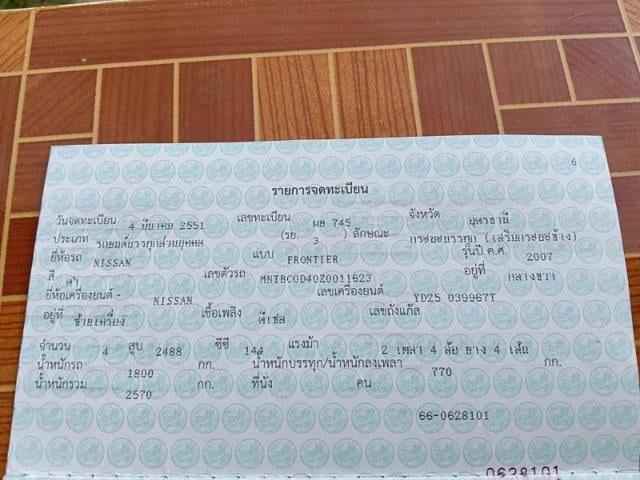 6
รายการจดทะเบียน
วันจดทะเบียน 4 มีนาคม 2551 เลขทะเบียน ผฉ 745 จังหวัด อุดรธานี
ประเภท รถยนต์บรรทุกส่วนบุคคล (รย. 3 ) ลักษณะ กระบะบรรทุก (เสริมกระบะข้าง)
ยี่ห้อรถ NISSAN แบบ FRONTIER รุ่นปี ค.ศ. 2007
สี ดำ เลขตัวรถ MNTBCGD40Z0011623 อยู่ที่ กลางขวา
ยี่ห้อเครื่องยนต์ - NISSAN เลขเครื่องยนต์ YD25 039967T
อยู่ที่ ซ้ายเครื่อง เชื้อเพลิง ดีเซล เลขถังแก๊ส
จำนวน 4 สูบ 2488 ซีซี 144 แรงม้า 2 เพลา 4 ล้อ ยาง 4 เส้น
น้ำหนักรถ 1800 กก. น้ำหนักบรรทุก/น้ำหนักลงเพลา 770 กก.
น้ำหนักรวม 2570 กก. ที่นั่ง คน
66-0628101
0628101